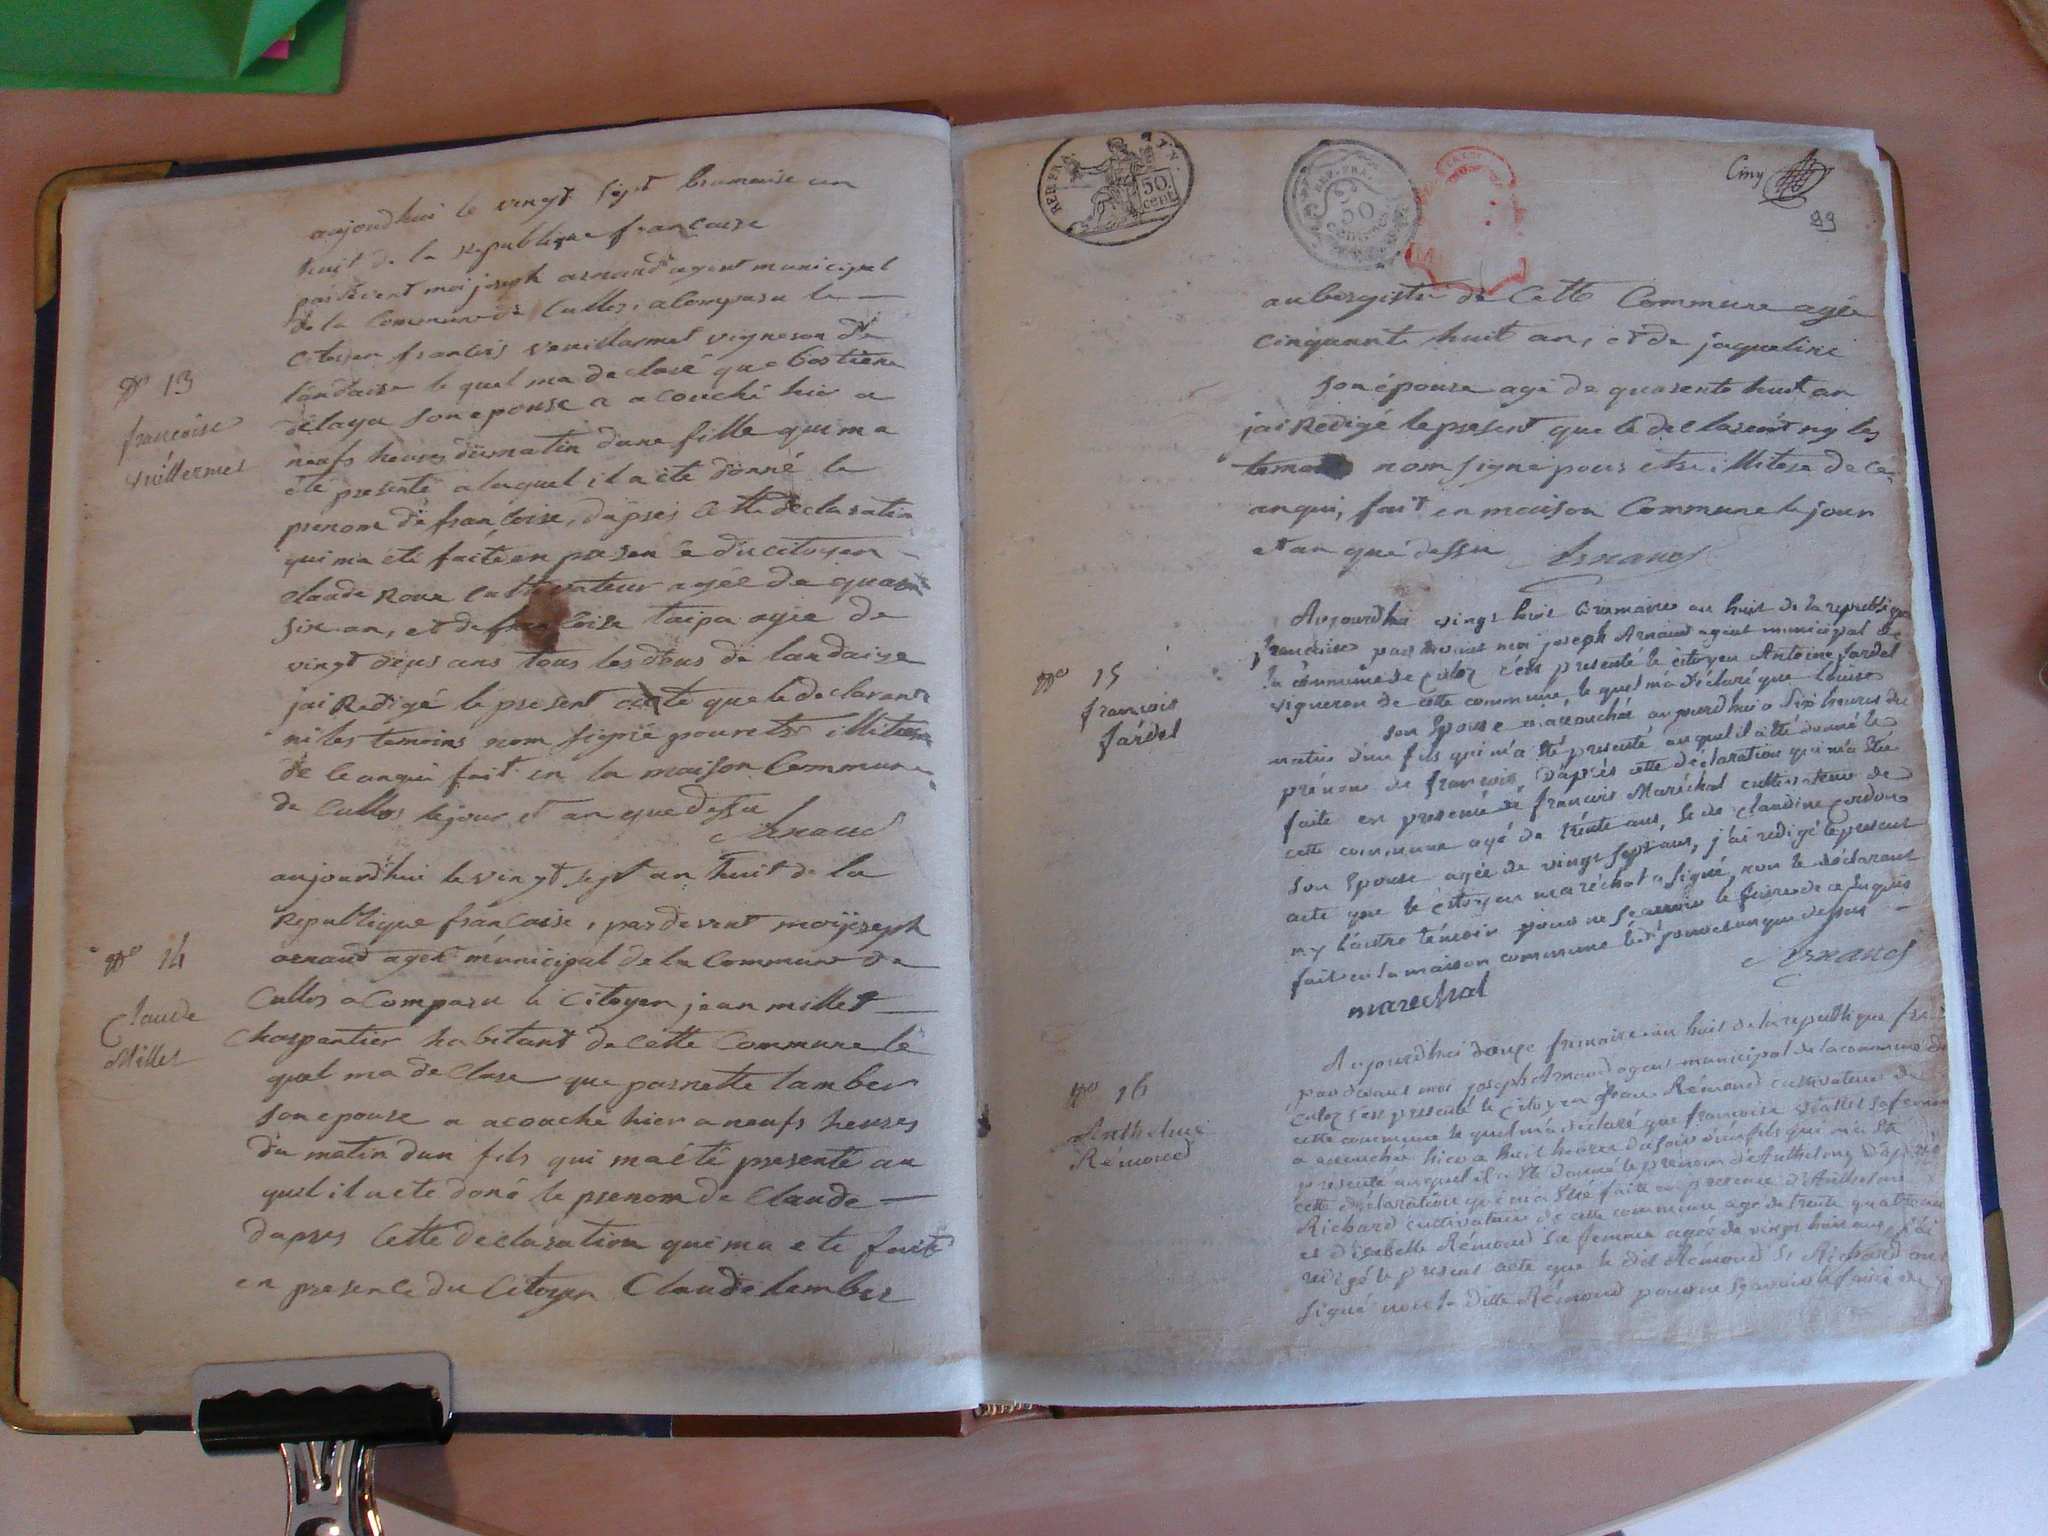 aujourdhui le vingt sept brumaire an
huit de la republique francaise
pardevent moi joseph arnaud agent municipal
de la Commune de Cullos, a Comparu le
Citoyen francois vuillarmet vigneron de
landaise le quel ma declaré que
delaya son epouse a acouché hier a
neufs heures dumatin dune fille qui ma
été presenté alaquel il a été donné le
prenom de francoise, dapres Cette declaration
qui ma été faite en presence du citoyen
Claude Roux Cultivateur agée de
six an, et de francoise taipa agée de
vingt deus ans tous les deus de landaize
jai Redigé le present acte que le declarant
ni les témoins nom signé pour etre illiteré
de le anqui fait en la maison Commune
de Cullos le jour et an que dessu
Arnaud
N° 13
francoise
vuillermet
aujourdhui le vingt sept an huit de la
Republique francaise, pardevent moi joseph
arnaud agent municipal de la Commune de
Cullos a Comparu le Citoyen jean millet
Charpentier habitant de Cette Commune le
quel ma declare que pernette lamber
son epouse a acouché hier a neufs heures
du matin dun fils qui ma été presenté au
quel il a ete doné le prenom de Claude
dapres Cette declaration qui ma ete faite
en presence du Citoyen Claude lamber
N° 14
Claude
Millet
REP. FRA.
50 cent.
REP. FRA.
50 Centimes
Cinq
99
aubergiste de Cette Commune agée
cinquante huit an, et de jaqueline
son épouse agé de quarente huit an
jai Redigé le present que le declarent ny les
nom signe pour etre illitere de ce
anqui, fait en maison Commune le jour
et an que dessu Arnaud
N° 15
francois
fardel
Aujourdhui vingt huit brumaire an huit de la republique
francaise par devant moi joseph Arnaud agent municipal de
la commune de culoz s'est presenté le citoyen Antoine fardel
vigneron de cette commune le quel m'a déclaré que Louise
son Epouse a accouché aujourdhui a six heures du
matin d'un fils qui m'a été presenté auquel il a été donné le
prénom de francois, d'après cette déclaration qui m'a été
faite en presence de francois Maréchal cultivateur de
cette commune agé de trente ans, et de claudine cordon
son Epouse agée de vingt sept ans, j'ai redigé le present
acte que le citoyen maréchal a signé, non le déclarant
ny l'autre témoin pour ne scavoir le faire de ce enquis
fait en la maison commune les jour et an que dessus
Arnaud
marechal
N° 16
Anthelme
Rémond
Aujourdhui douze frimaire an huit de la republique
pardevant moi joseph Arnaud agent municipal de la commune de
culoz s'est presenté le citoyen Rémond cultivateur de
cette commune le quel m'a déclaré que francoise sa femme
a accouché hier a huit heures du soir d'un fils qui m'a été
presenté auquel il a été donné le prénom d'Anthelme d'après
cette déclaration qui m'a été faite en presence d'Anthelme
Richard cultivateur de cette commune agé de trente quatre ans
et d'isabelle Rémond sa femme agée de vingt huit ans, j'ai
redigé le present acte que le dit Rémond et Richard ont
signé non la ditte Rémond pour ne scavoir le faire de